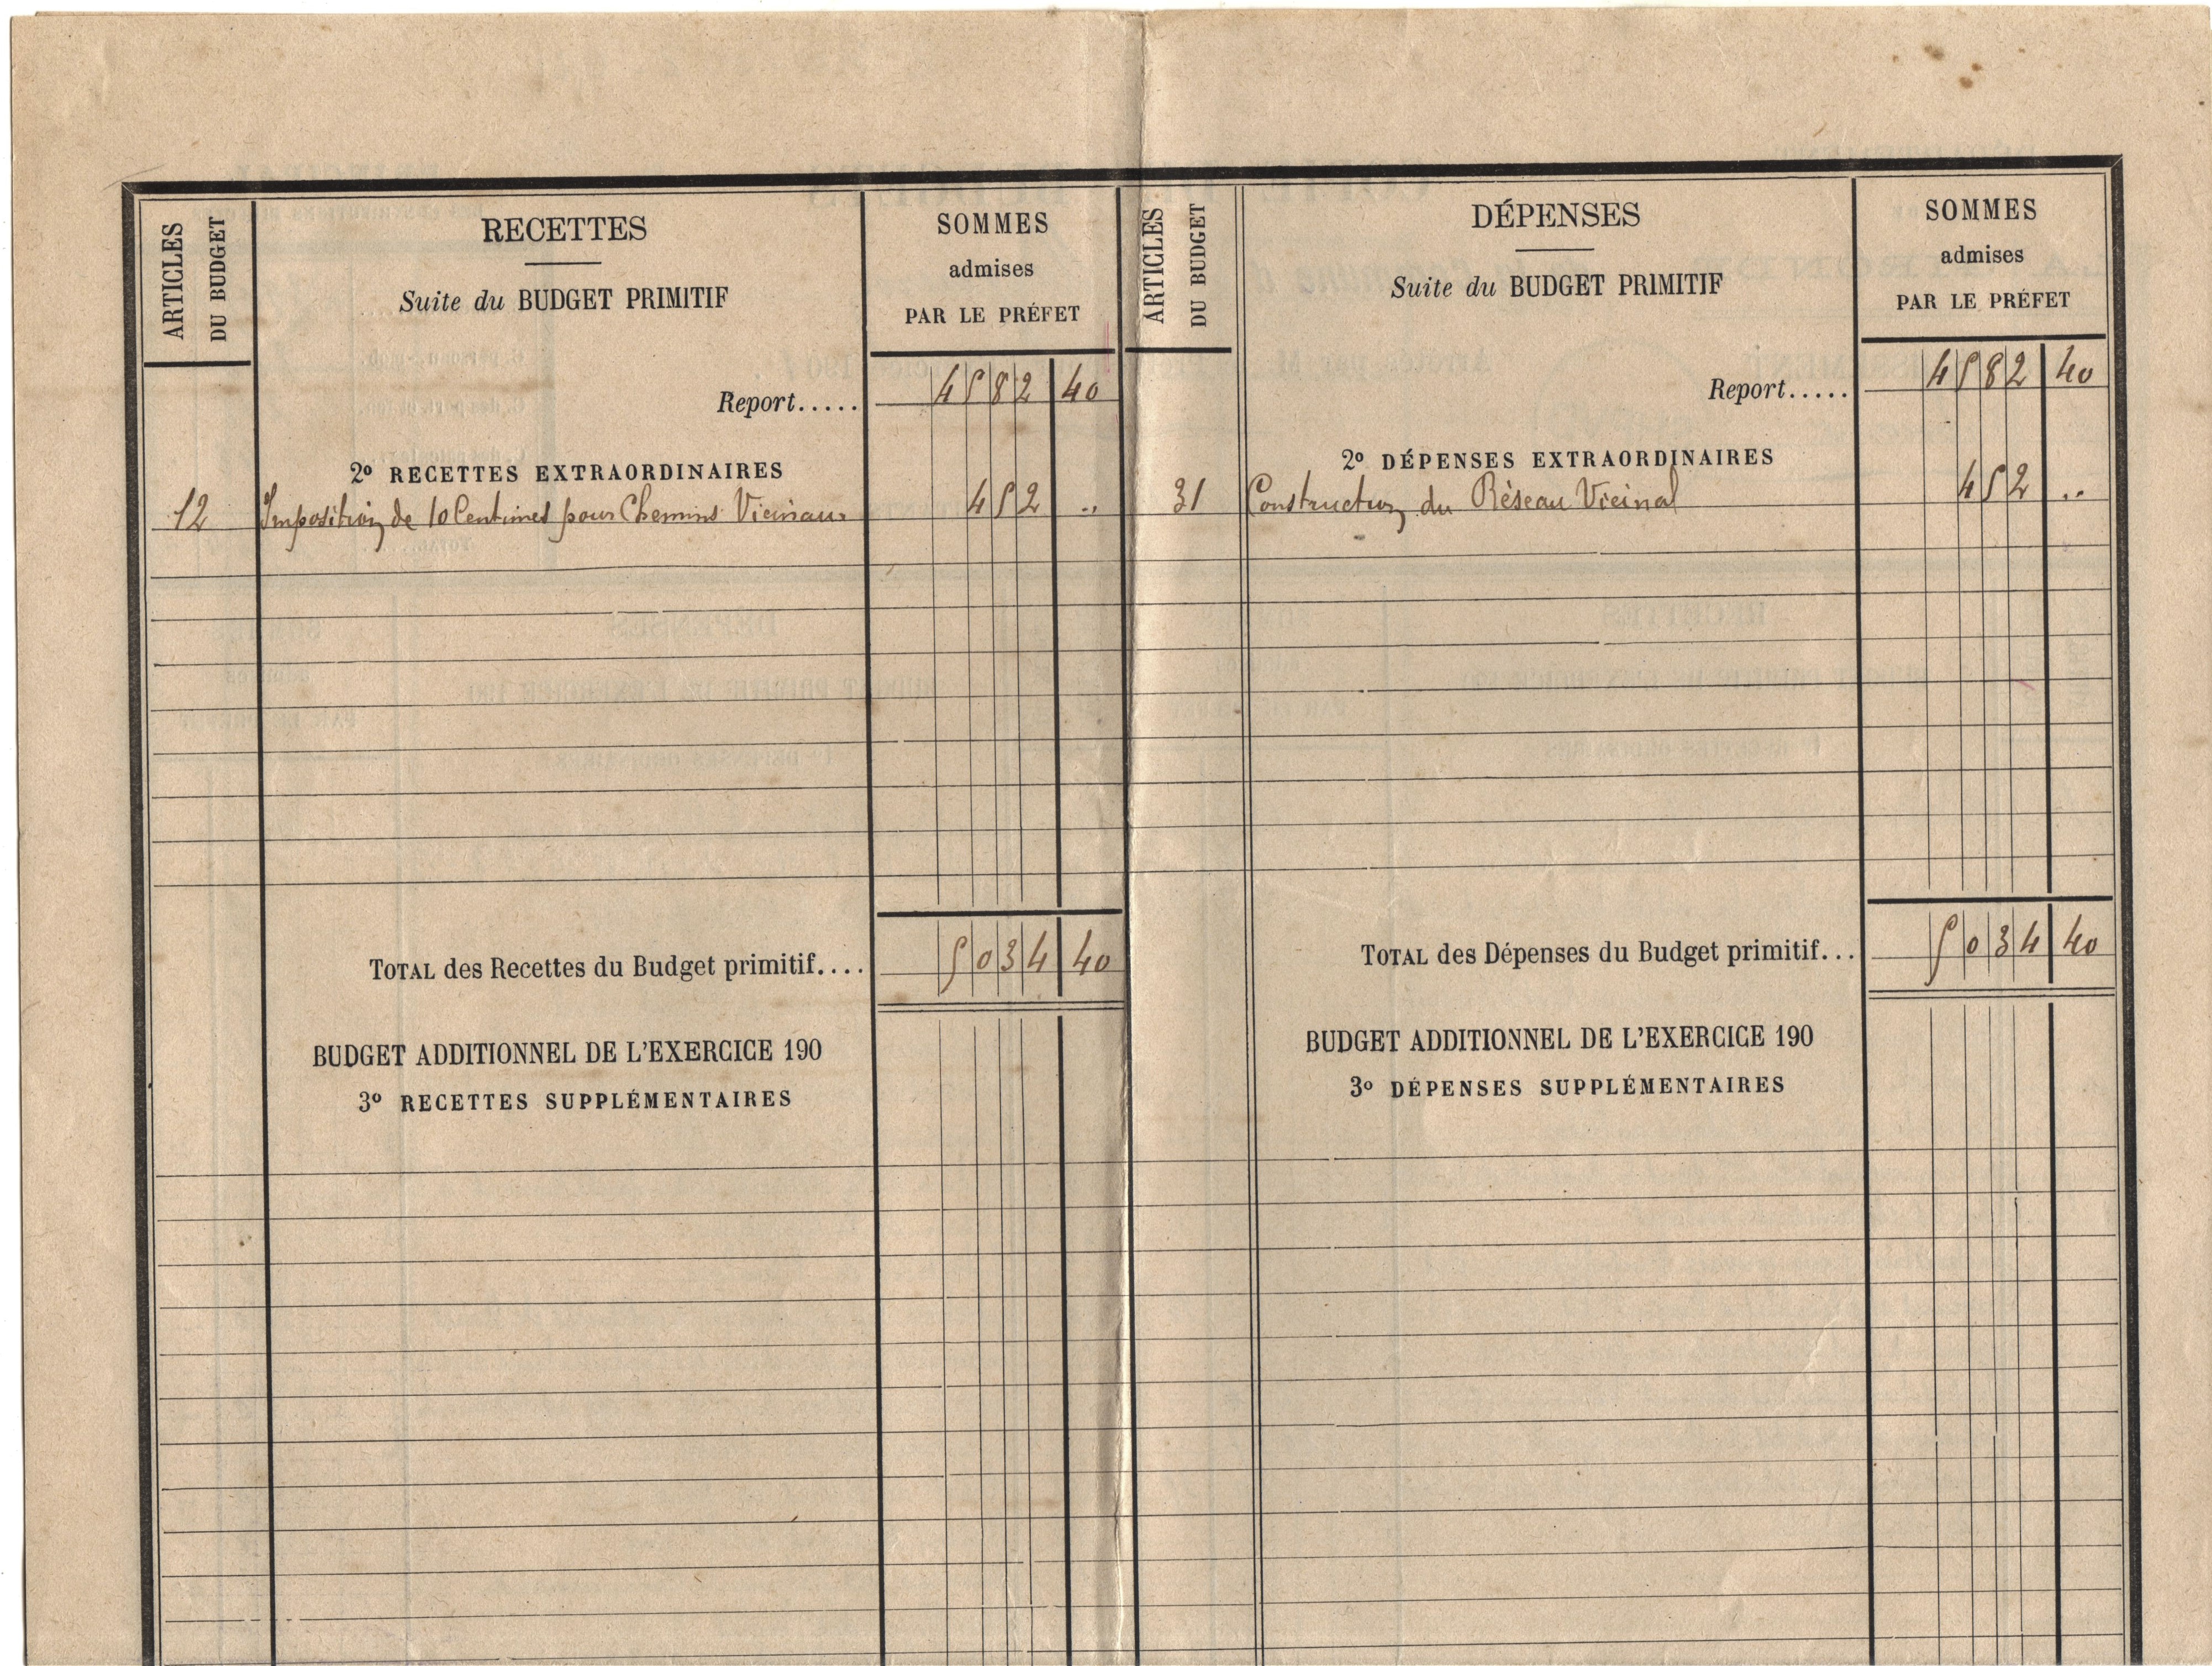 ARTICLES
DU BUDGET
RECETTES
Suite du BUDGET PRIMITIF
SOMMES
admises
PAR LE PRÉFET
Report..... 4582 40
2º RECETTES EXTRAORDINAIRES
12 Imposition de 10 Centimes pour Chemins Vicinaux 452 ..
TOTAL des Recettes du Budget primitif.... 5034 40
BUDGET ADDITIONNEL DE L'EXERCICE 190
3º RECETTES SUPPLÉMENTAIRES
ARTICLES
DU BUDGET
DÉPENSES
Suite du BUDGET PRIMITIF
SOMMES
admises
PAR LE PRÉFET
Report..... 4582 40
2º DÉPENSES EXTRAORDINAIRES
31 Construction du Réseau Vicinal 452 ..
TOTAL des Dépenses du Budget primitif... 5034 40
BUDGET ADDITIONNEL DE L'EXERCICE 190
3º DÉPENSES SUPPLÉMENTAIRES